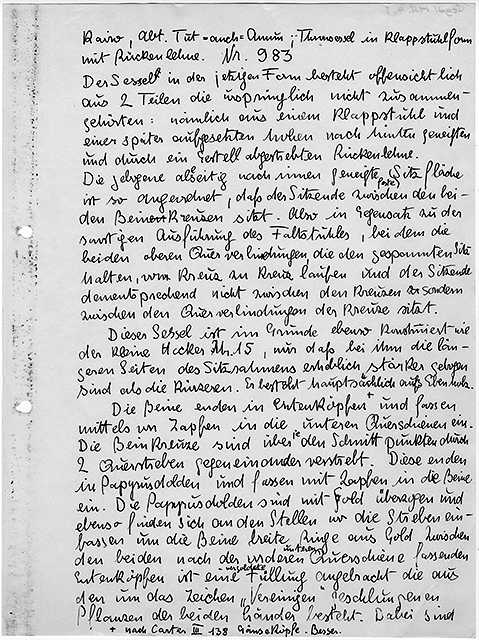 Kairo, Abt. Tut-anch-Amun; Thronsessel in Klappstuhlform
mit Rückenlehne. Nr. 983
Der Sessel in der jetzigen Form besteht offensichtlich
aus 2 Teilen die ursprünglich nicht zusammen-
gehörten: nämlich aus einem Klappstuhl und
einer später aufgesetzten hohen nach hinten geneigten
und durch ein Gestell abgestrebten Rückenlehne.
Die gebogene allseitig nach innen geneigte Sitzfläche
ist so angeordnet, daß der Sitzende zwischen den bei-
den Beinen Kreuzen sitzt. Also in Gegensatz zu der
Ausführung des Faltstuhles, bei dem die
beiden oberen Querverbindungen die den gespannten Sitz
halten, von Kreuz zu Kreuz laufen und der Sitzende
dementsprechend nicht zwischen den Kreuzen sondern
zwischen den Querverbindungen der Kreuze sitzt.
Dieser Sessel ist im Grunde ebenso konstruiert wie
der kleine Hocker Nr. 15, nur daß bei ihm die län-
geren Seiten des Sitzrahmens erheblich stärker gebogen
sind als die kürzeren. Er besteht hauptsächlich aus Ebenholz.
Die Beine enden in Entenköpfen + und fassen
mittels von Zapfen in die unteren Querschienen ein.
Die Beinkreuze sind über den Schnittpunkten durch
2 Querstreben gegeneinander verstrebt. Diese enden
in Papyrusdolden und fassen mit Zapfen in die Beine
ein. Die Papyrusdolden sind mit Gold überzogen und
ebenso finden sich an den Stellen wo die Streben ein-
fassen um die Beine breite Ringe aus Gold. Zwischen
den beiden nach der vorderen unteren Querschiene fassenden
Entenköpfen ist eine vergoldete Füllung angebracht die aus
den um das Zeichen „Vereinigen" geschlungenen
Pflanzen der beiden Länder besteht. Dabei sind
+ nach Carter III 138 Gänseköpfe. Besser.